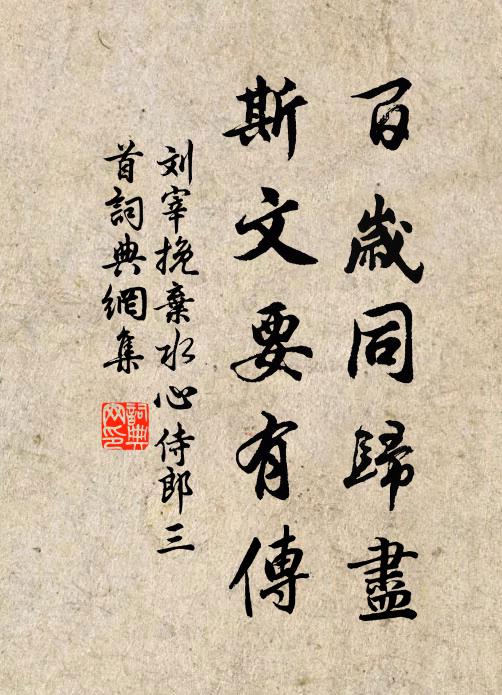 百歲同歸盡
斯文要有傳
刘宰挽棄水心侍郎三
首詞典網集
詞典网印